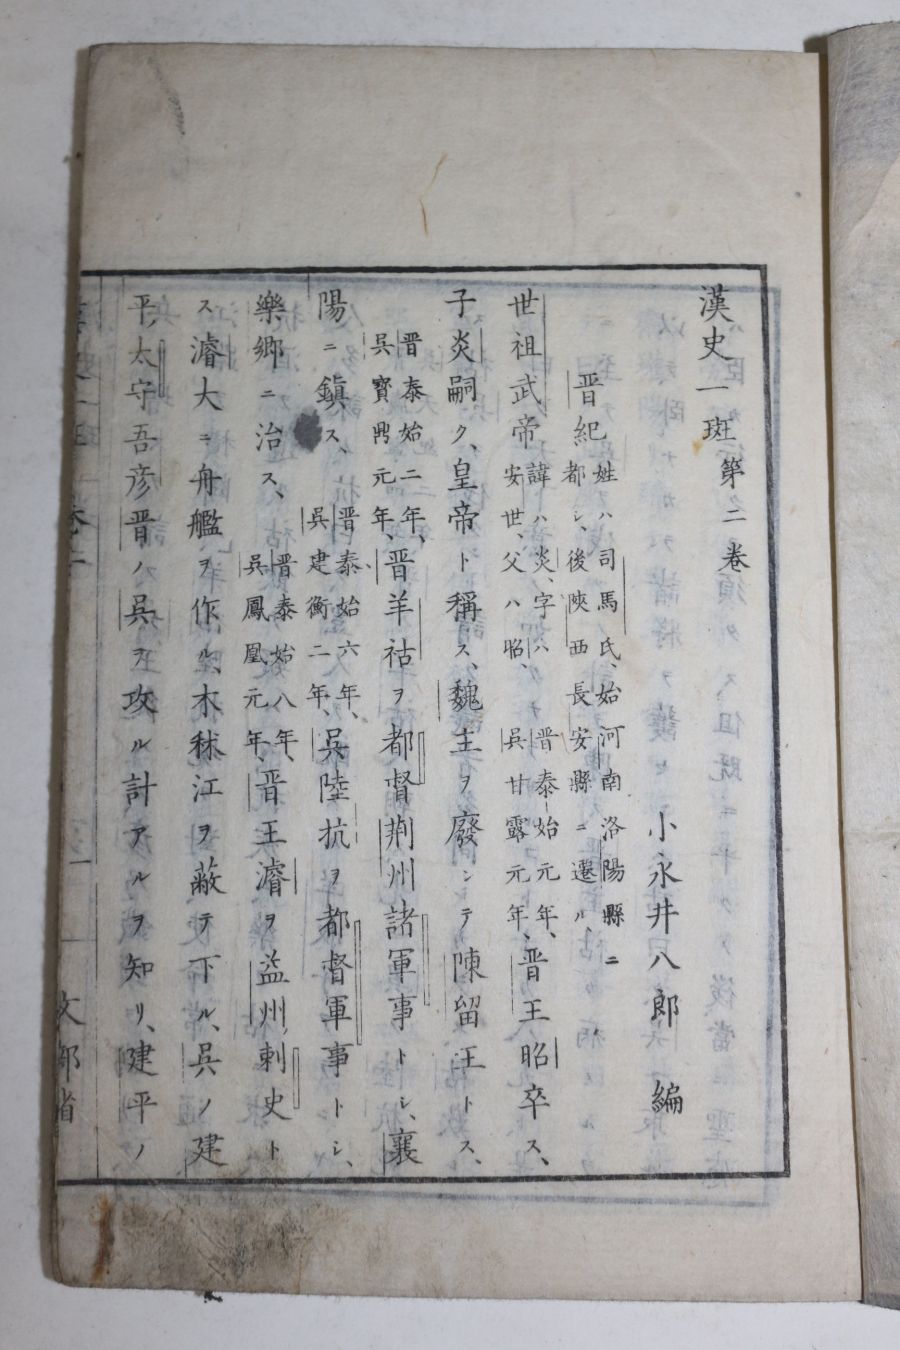 漢史一班第二卷
小永井八郎 編
晋紀 姓ハ司馬氏、始河南洛陽縣ニ
都シ、後陝西長安縣ニ遷ル、
世祖武帝 諱ハ炎、字ハ
安世、父ハ昭、 晋泰始元年、
呉甘露元年、 晋王昭卒ス、
子炎嗣ク、皇帝ト稱ス、魏主ヲ廢シテ陳留王トス、
晋泰始二年、
呉寳鼎元年、 晋羊祜ヲ都督荆州諸軍事トシ、襄
陽ニ鎮ス、 晋泰始六年、
呉建衡二年、 呉陸抗ヲ都督軍事トシ、
樂鄉ニ治ス、 晋泰始八年、
呉鳳凰元年、 晋王濬ヲ益州刺史ト
ス濬大ニ舟艦ヲ作ル、木柹江ヲ蔽テ下ル、呉ノ建
平、太守吾彦晋ハ呉ヲ攻ル計アルヲ知リ、建平ノ
文部省